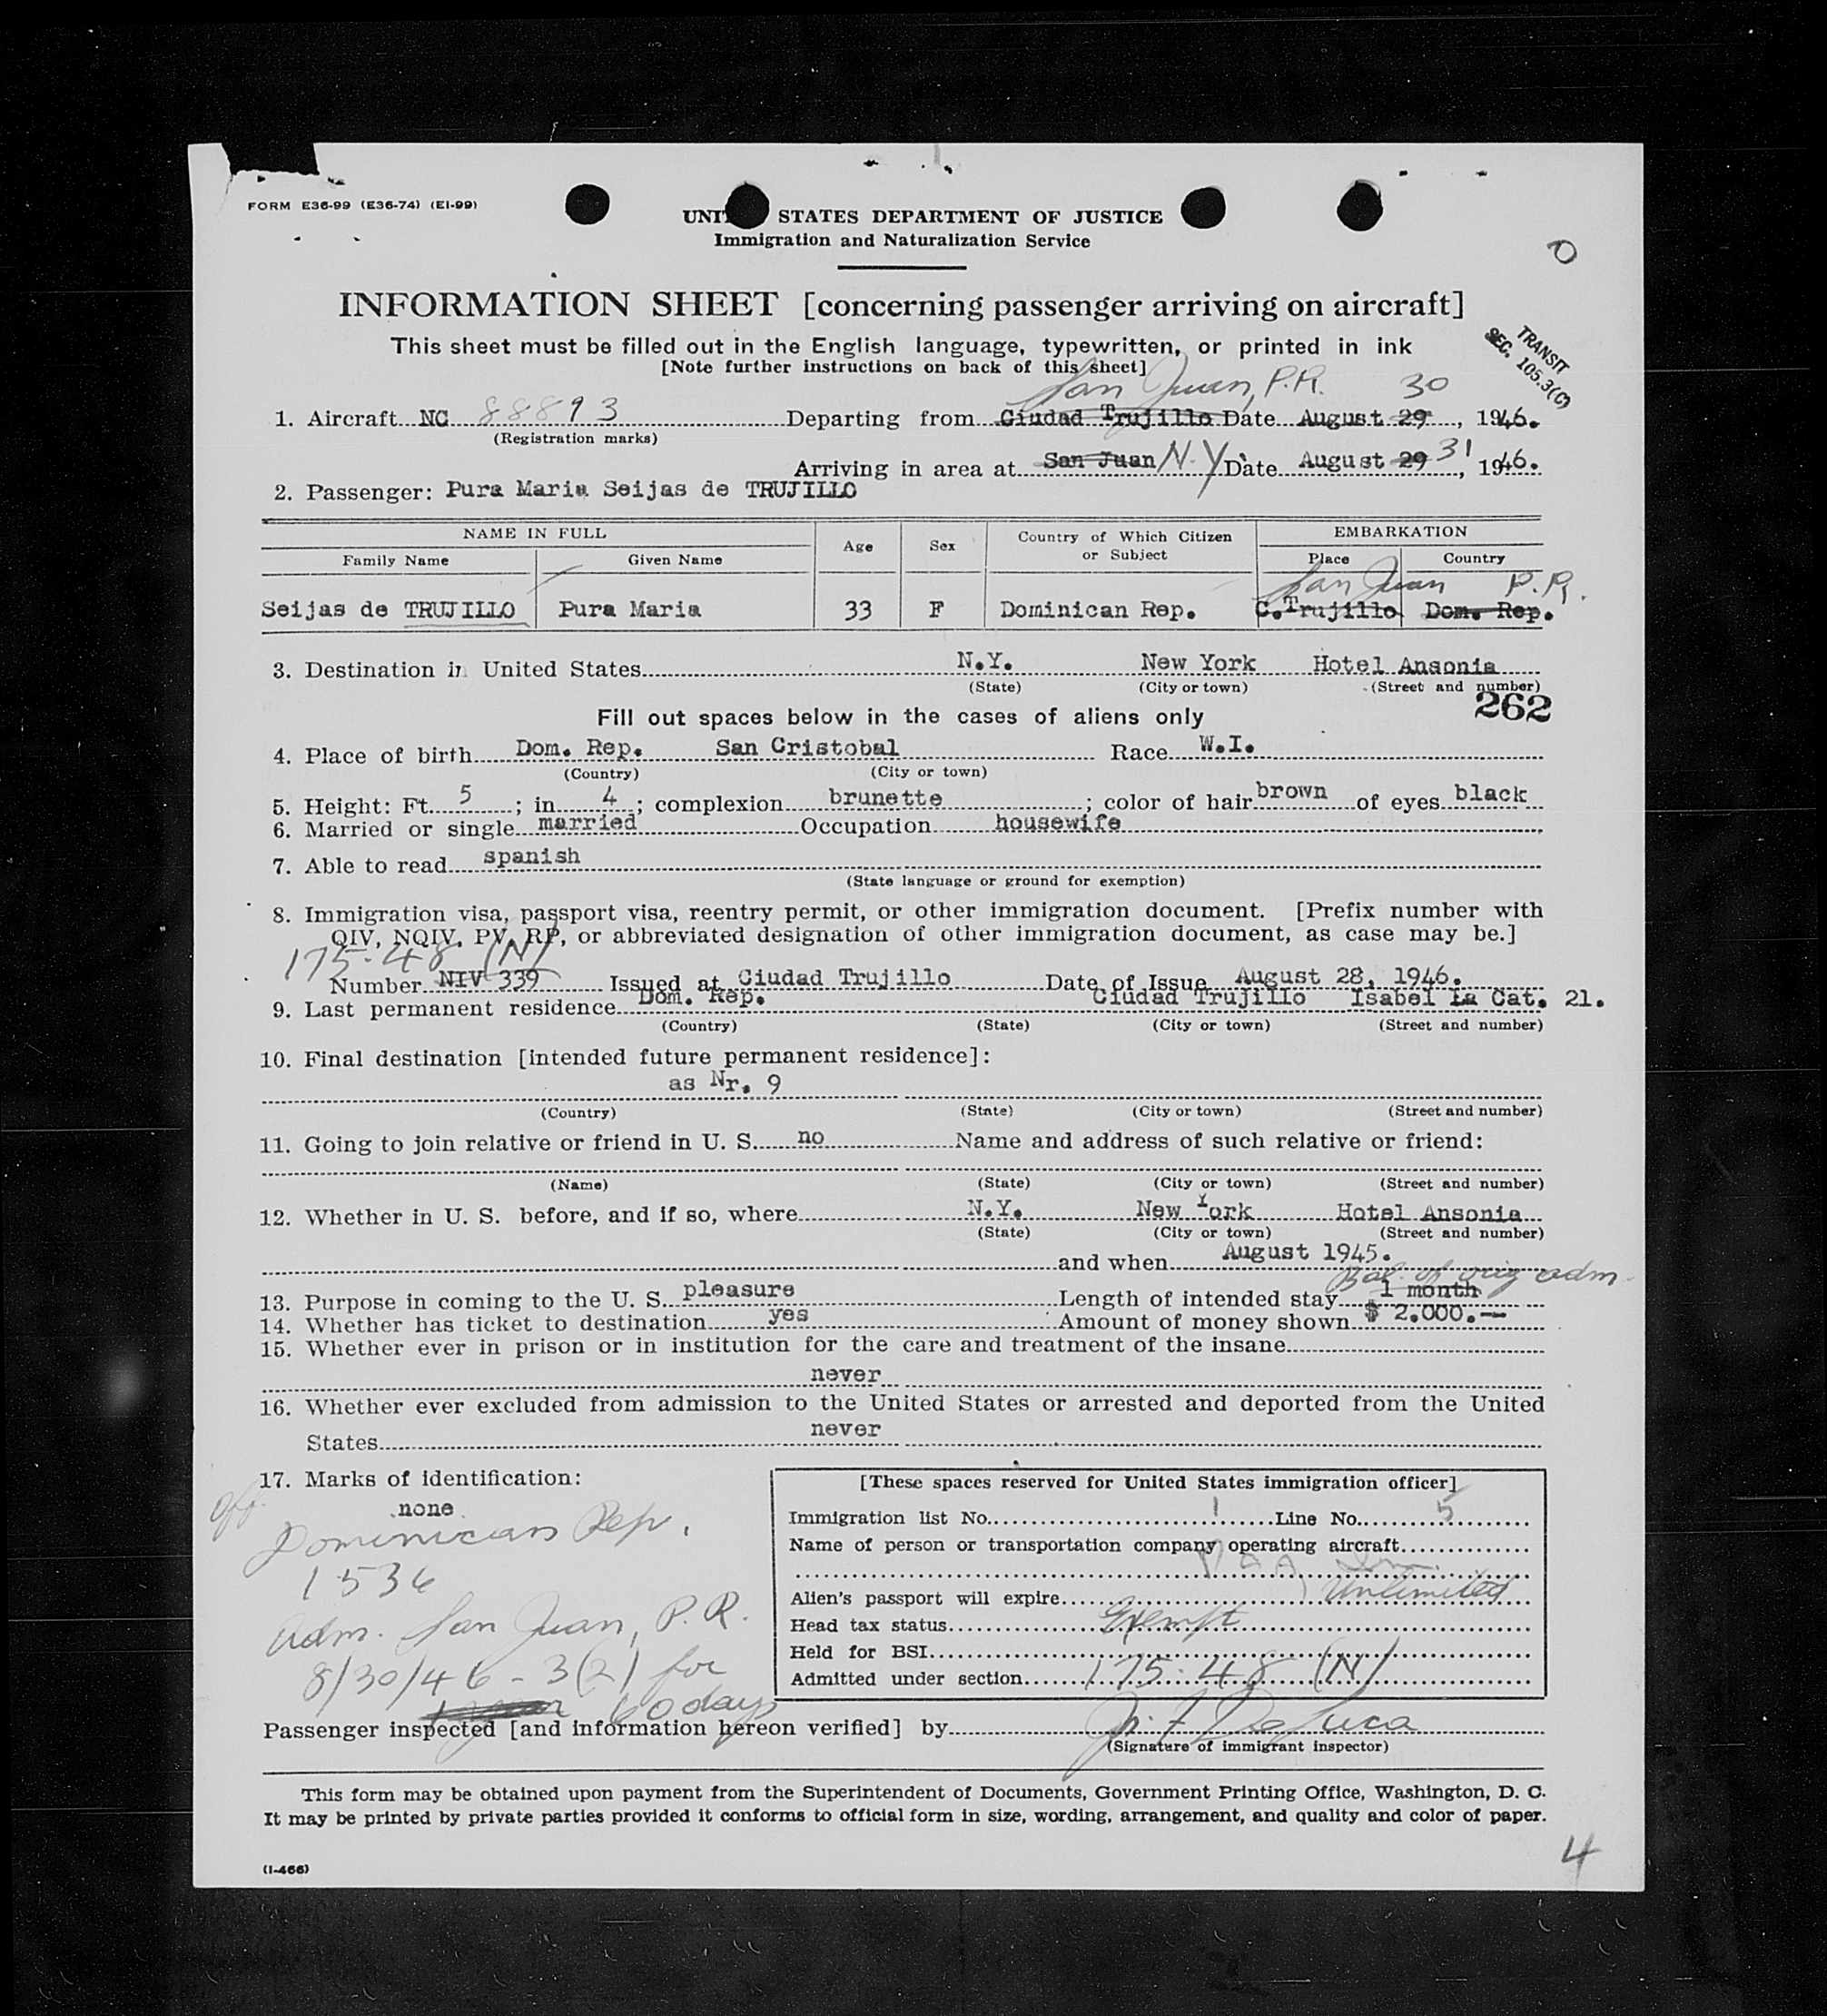 FORM E36-99 (E36-74) (EI-99)
UNI STATES DEPARTMENT OF JUSTICE
Immigration and Naturalization Service
O
INFORMATION SHEET [concerning passenger arriving on aircraft]
TRANSIT
SEC. 105.3(C)
This sheet must be filled out in the English language, typewritten, or printed in ink
[Note further instructions on back of this sheet]
San Juan, P.R. 30
1. Aircraft NC 88893 Departing from Ciudad Trujillo Date August 29, 1946.
(Registration marks)
Arriving in area at San Juan N.Y. Date August 29 31, 1946.
2. Passenger: Pura Maria Seijas de TRUJILLO
NAME IN FULL Age Sex Country of Which Citizen or Subject EMBARKATION
Family Name Given Name Place Country
San Juan P.R.
Seijas de TRUJILLO Pura Maria 33 F Dominican Rep. C.Trujillo Dom. Rep.
3. Destination in United States N.Y. New York Hotel Ansonia
(State) (City or town) (Street and number)
262
Fill out spaces below in the cases of aliens only
4. Place of birth Dom. Rep. San Cristobal Race W.I.
(Country) (City or town)
5. Height: Ft. 5; in 4; complexion brunette; color of hair brown of eyes black
6. Married or single married Occupation housewife
7. Able to read spanish
(State language or ground for exemption)
8. Immigration visa, passport visa, reentry permit, or other immigration document. [Prefix number with
QIV, NQIV, PV, RP, or abbreviated designation of other immigration document, as case may be.]
175.48 (N)
Number NIV 339 Issued at Ciudad Trujillo Date of Issue August 28, 1946.
9. Last permanent residence Dom. Rep. Ciudad Trujillo Isabel La Cat. 21.
(Country) (State) (City or town) (Street and number)
10. Final destination [intended future permanent residence]:
as Nr. 9
(Country) (State) (City or town) (Street and number)
11. Going to join relative or friend in U. S. no Name and address of such relative or friend:
(Name) (State) (City or town) (Street and number)
12. Whether in U. S. before, and if so, where N.Y. New York Hotel Ansonia
(State) (City or town) (Street and number)
and when August 1945.
Bal. of orig adm.
13. Purpose in coming to the U. S. pleasure Length of intended stay 1 month
14. Whether has ticket to destination yes Amount of money shown $ 2.000.--
15. Whether ever in prison or in institution for the care and treatment of the insane
never
16. Whether ever excluded from admission to the United States or arrested and deported from the United
States never
17. Marks of identification:
none
Dominican Rep.
1536
adm. San Juan, P.R.
8/30/46 - 3(2) for
60 days
[These spaces reserved for United States immigration officer]
Immigration list No. 1 Line No. 5
Name of person or transportation company operating aircraft
Alien's passport will expire Unlimited
Head tax status Exempt
Held for BSI
Admitted under section 175.48 (N)
Passenger inspected [and information hereon verified] by
(Signature of immigrant inspector)
This form may be obtained upon payment from the Superintendent of Documents, Government Printing Office, Washington, D. C.
It may be printed by private parties provided it conforms to official form in size, wording, arrangement, and quality and color of paper.
(I-466)
4